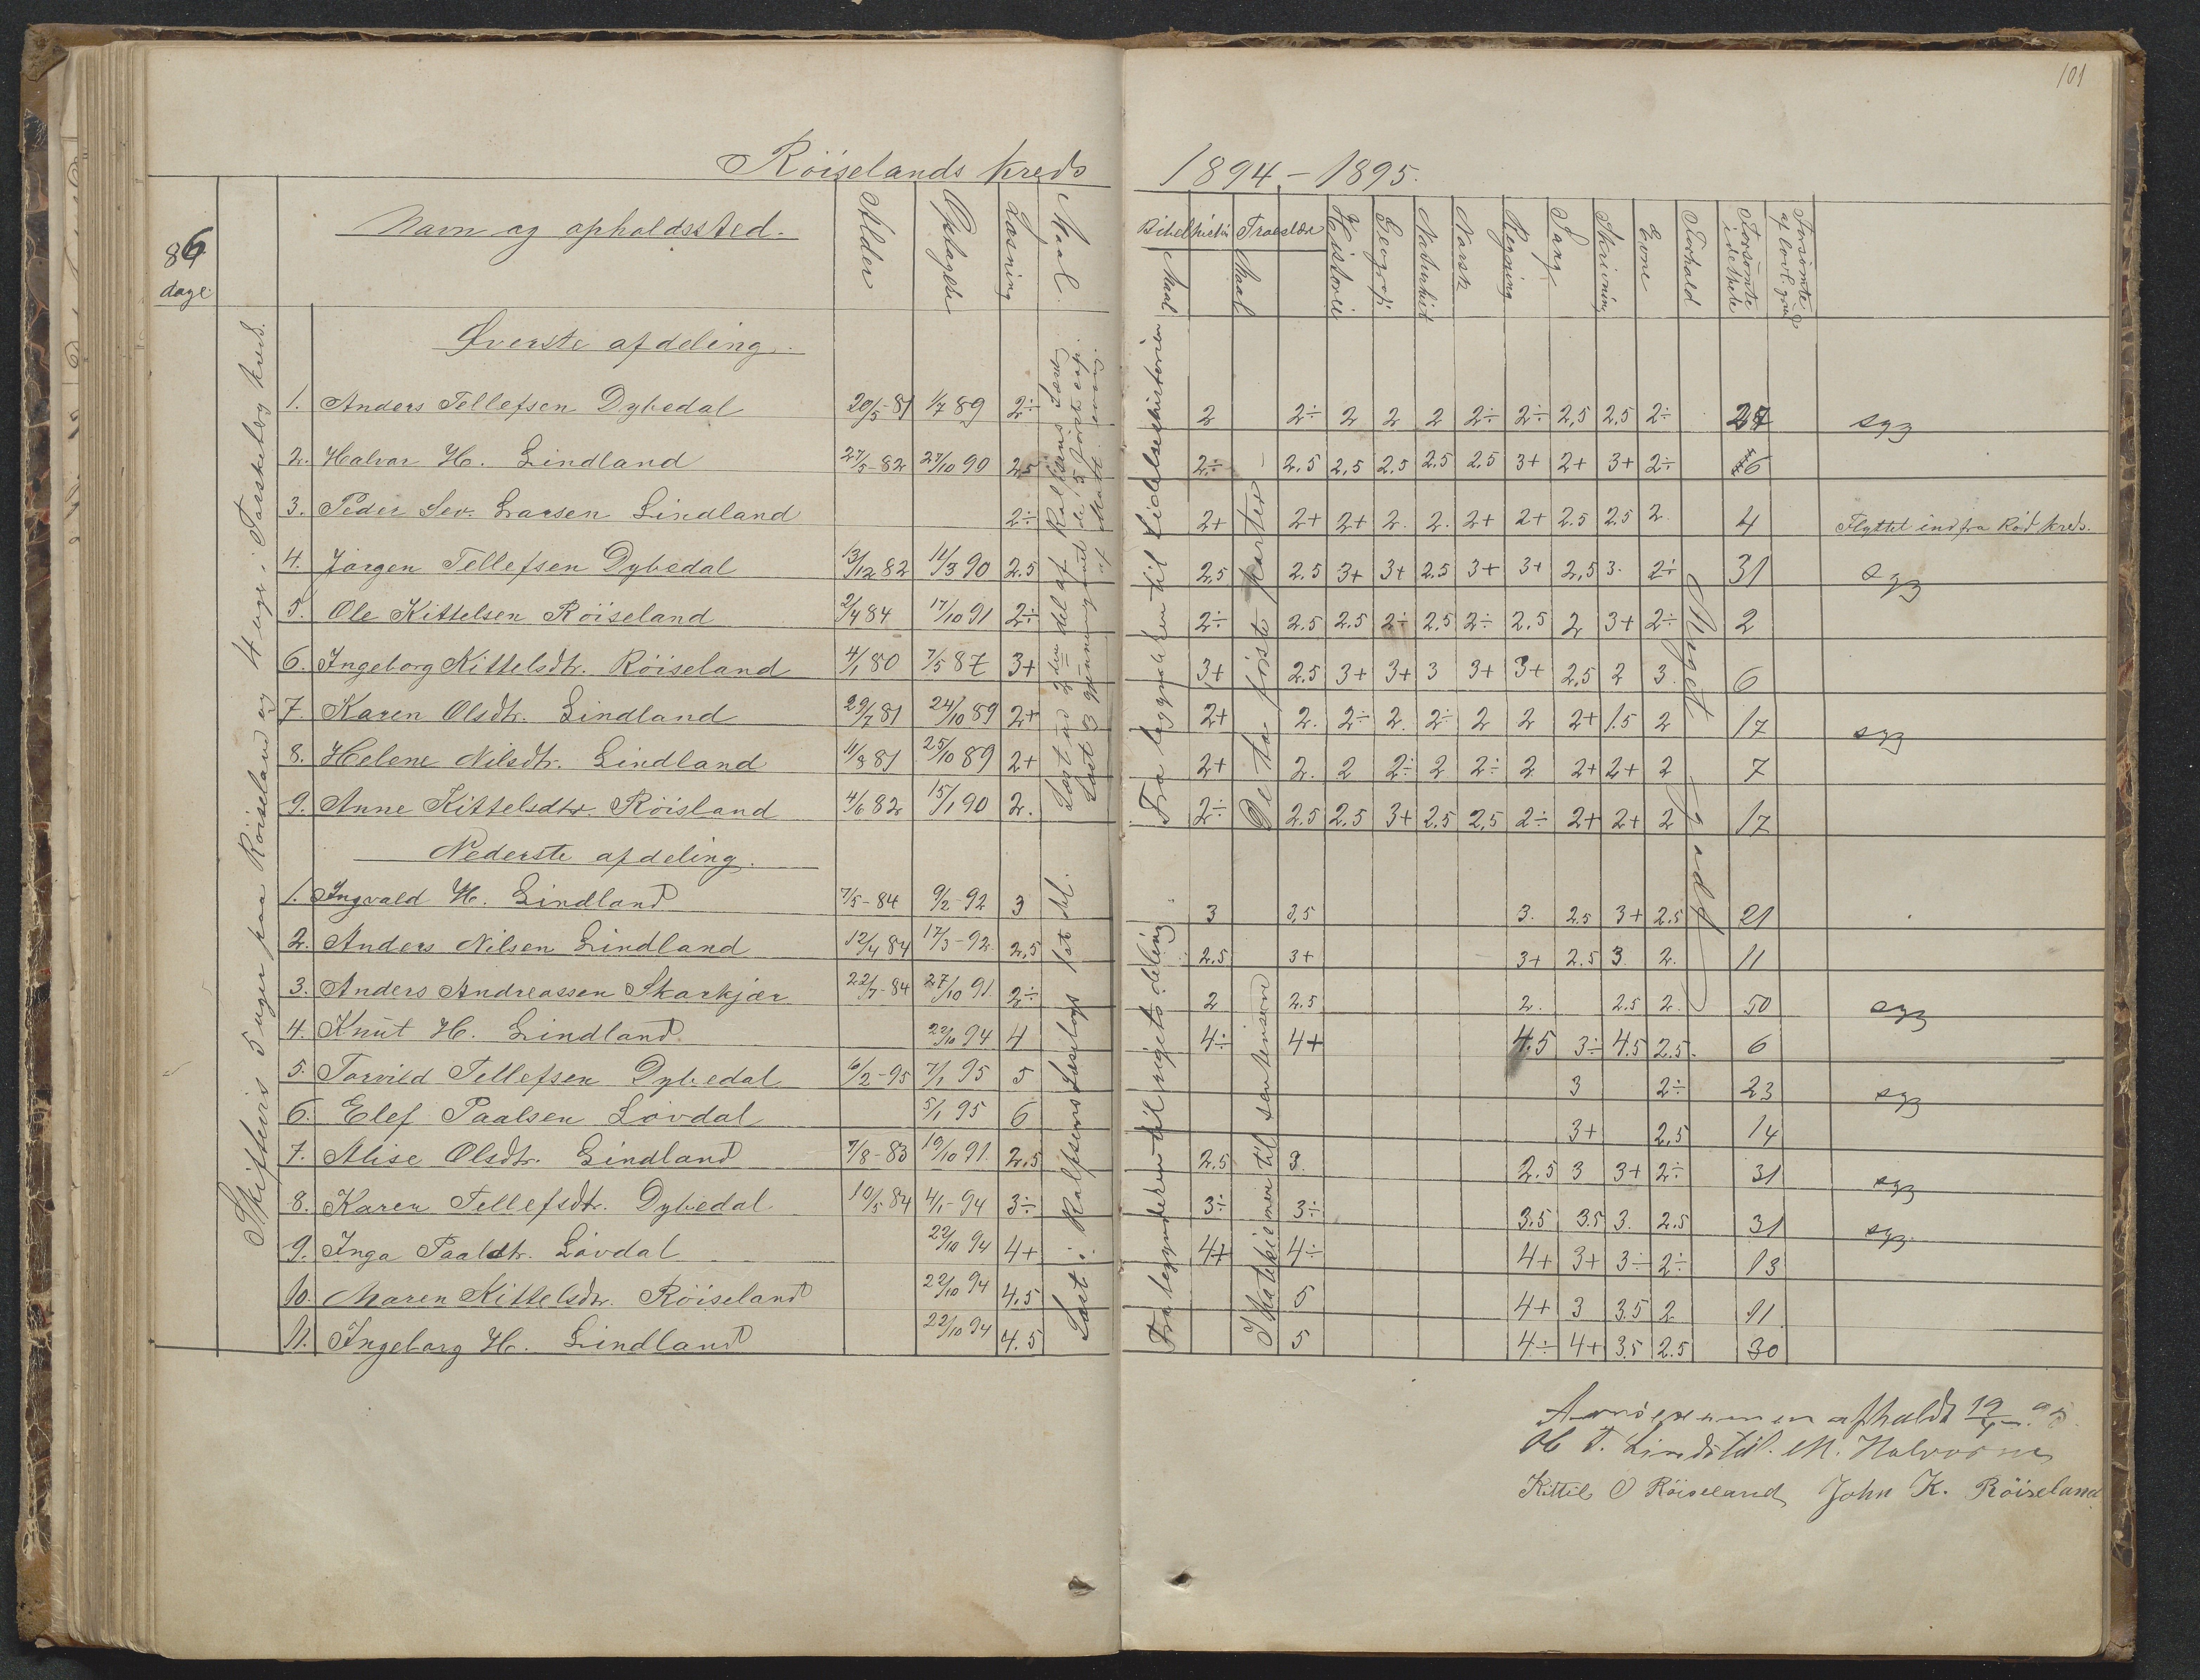 101
Röiselands kreds 1894 – 1895.
86 dage
Navn og opholdssted. Alder Optagelse Læsning Maal. Bibelhistorie Maal Troeslære Maal Historie Geografi Naturhist Norsk Regning Sang Skrivning Evne Forhold Forsömte idethele Forsömte af lovl. grund
Skiftevis 5 uger paa Röiseland og 4 uger i Torskeberg kreds.
Øverste afdeling.
1. Anders Tellefsen Dybedal 20/5-81 1/7 89 2÷ 2 2÷ 2 2 2 2÷ 2÷ 2,5 2.5 2÷ 27 syg
2. Halvor H. Lindland 27/5-82 27/10 90 2,5 2÷ 2.5 2,5 2,5 2.5 2.5 3+ 2+ 3+ 2÷ 6
3. Peder Sev. Larsen Lindland 2÷ 2+ 2+ 2+ 2. 2. 2+ 2+ 2.5 2.5 2. 4 Flyttet ind fra Rød kreds.
4. Jörgen Tellefsen Dybedal 13/12 82 11/3 90 2.5 2,5 2.5 3+ 3+ 2.5 3+ 3+ 2,5 3. 2÷ 31 syg
5. Ole Kittelsen Röiseland 2/4 84 17/10 91 2÷ 2÷ 2.5 2.5 2÷ 2.5 2÷ 2.5 2 3+ 2÷ 2
6. Ingeborg Kittelsdtr. Röiseland 4/1 80 7/5 87 3+ 3+ 2.5 3+ 3+ 3 3+ 3+ 2,5 2 3. 6
7. Karen Olsdtr. Lindland 29/7 81 24/10 89 2+ 2+ 2. 2÷ 2. 2÷ 2 2 2+ 1.5 2 17 syg
8. Helene Nilsdtr. Lindland 11/8 81 25/10 89 2+ 2+ 2. 2 2÷ 2 2÷ 2 2+ 2+ 2 7
9. Anne Kittelsdtr. Röisland 4/6 82 15/1 90 2. 2÷ 2.5 2.5 3+ 2.5 2,5 2÷ 2+ 2+ 2 17
Fra begyndelsen til Lidelseshistorien
De to förste parter
Meget godt
Nederste afdeling.
1. Ingvald H. Lindland 7/5-84 9/2-92 3 3 3,5 3. 2.5 3+ 2.5 21
2. Anders Nilsen Lindland 12/4 84 17/3-92 2,5 2.5 3+ 3+ 2.5 3. 2. 11
3. Anders Andreassen Skarkjær 22/7-84 27/10 91 2÷ 2 2.5 2. 2.5 2. 50 syg
4. Knut H. Lindland 22/10 94 4 4÷ 4+ 4,5 3÷ 4.5 2.5. 6
5. Torvild Tellefsen Dybedal 6/2-95 7/1 95 5 3 2÷ 23 syg
6. Elef Paalsen Lövdal 5/1 95 6 3+ 2,5 14
7. Alise Olsdtr. Lindland 7/8-83 19/10 91. 2,5 2.5 3. 2.5 3 3+ 2÷ 31 syg
8. Karen Tellefsdtr. Dybedal 10/5 84 4/1-94 3÷ 3÷ 3÷ 3.5 3.5 3. 2.5 31 syg.
9. Inga Paaldtr. Lövdal 22/10 94 4+ 4+ 4÷ 4+ 3+ 3÷ 2÷ 13
10. Maren Kittelsdtr. Röiseland 22/10 94 4,5 5 4+ 3 3.5 2. 11
11. Ingeborg H. Lindland 22/10 94 4.5 5 4÷ 4+ 3.5 2.5 30
Læst i Rolfsens Læsebogs 1st del.
Fra begynderen til rigets deling
Katekismen til
afholdt 19/
M. Halvorsen
Kittil O Röiseland John K. Röiseland